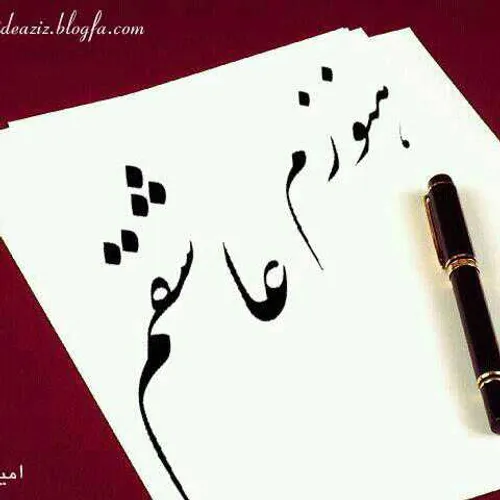 ideaziz.blogfa.com
هنوزم
عاشقم